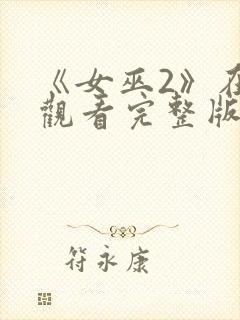 《女巫2》在
觀看完整版
符永康